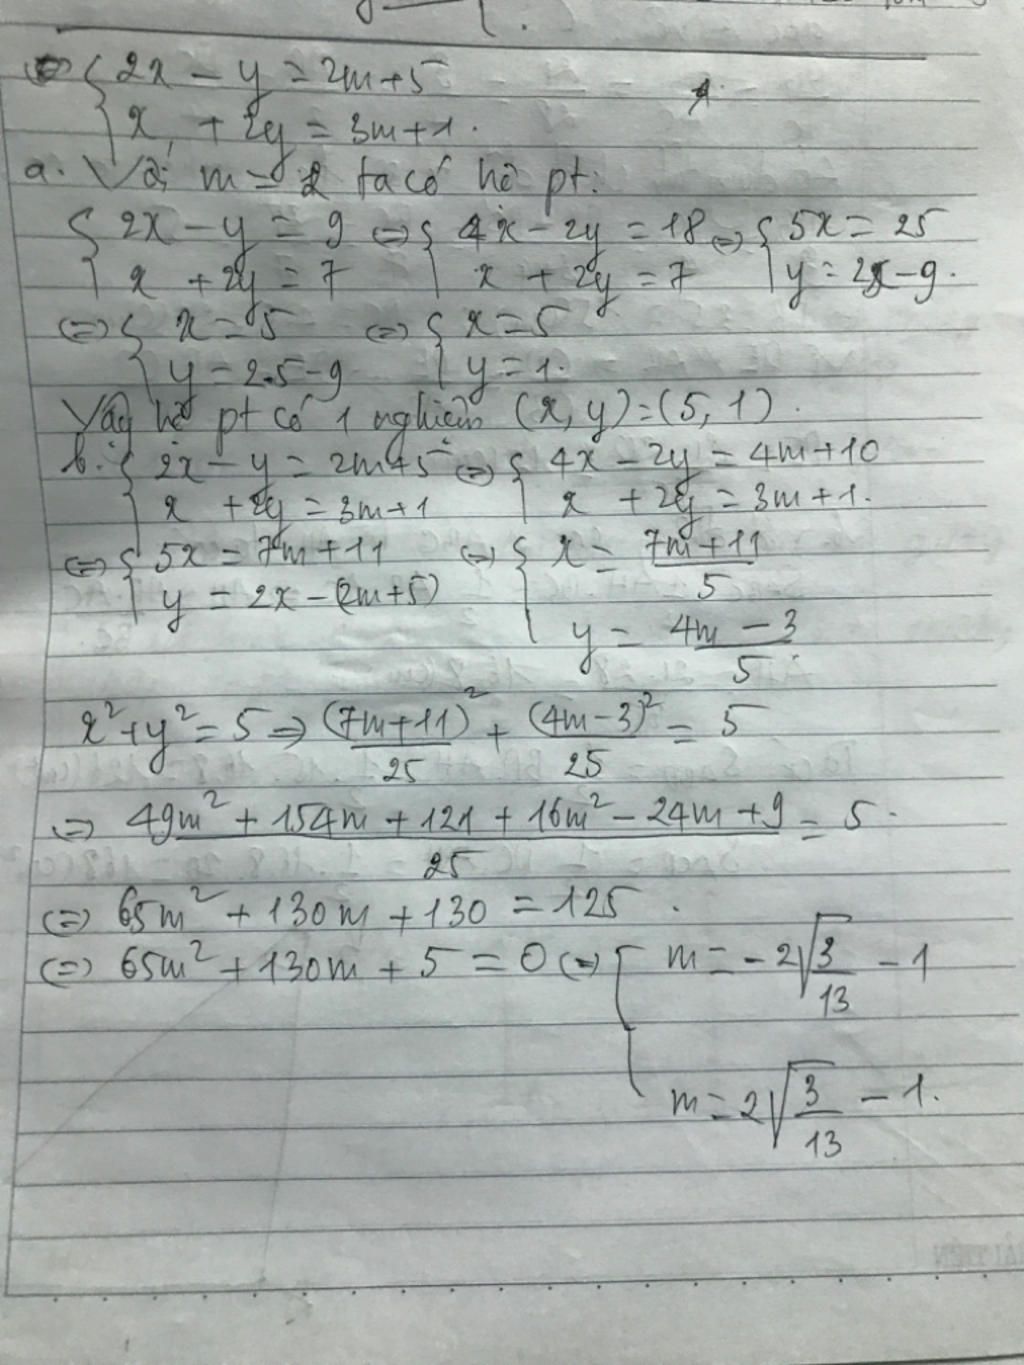 ⇔ { 2x - y = 2m+5
x + 2y = 3m+1.
a. Với m = 2 ta có hệ pt:
{ 2x - y = 9 ⇔ { 4x - 2y = 18 ⇔ { 5x = 25
x + 2y = 7 x + 2y = 7 y = 2x - 9.
⇔ { x = 5 ⇔ { x = 5
y = 2.5-9 y = 1.
Vậy hệ pt có 1 nghiệm (x, y) = (5, 1).
b. { 2x - y = 2m+5 ⇔ { 4x - 2y = 4m+10
x + 2y = 3m+1 x + 2y = 3m+1.
⇔ { 5x = 7m+11 ⇔ { x = 7m+11
y = 2x - (2m+5) 5
y = 4m - 3
5
x² + y² = 5 ⇒ (7m+11)² + (4m-3)² = 5
25 25
⇒ 49m² + 154m + 121 + 16m² - 24m + 9 = 5.
25
⇔ 65m² + 130m + 130 = 125.
⇔ 65m² + 130m + 5 = 0 ⇔ [ m = -2√3 - 1
13
m = 2√3 - 1.
13